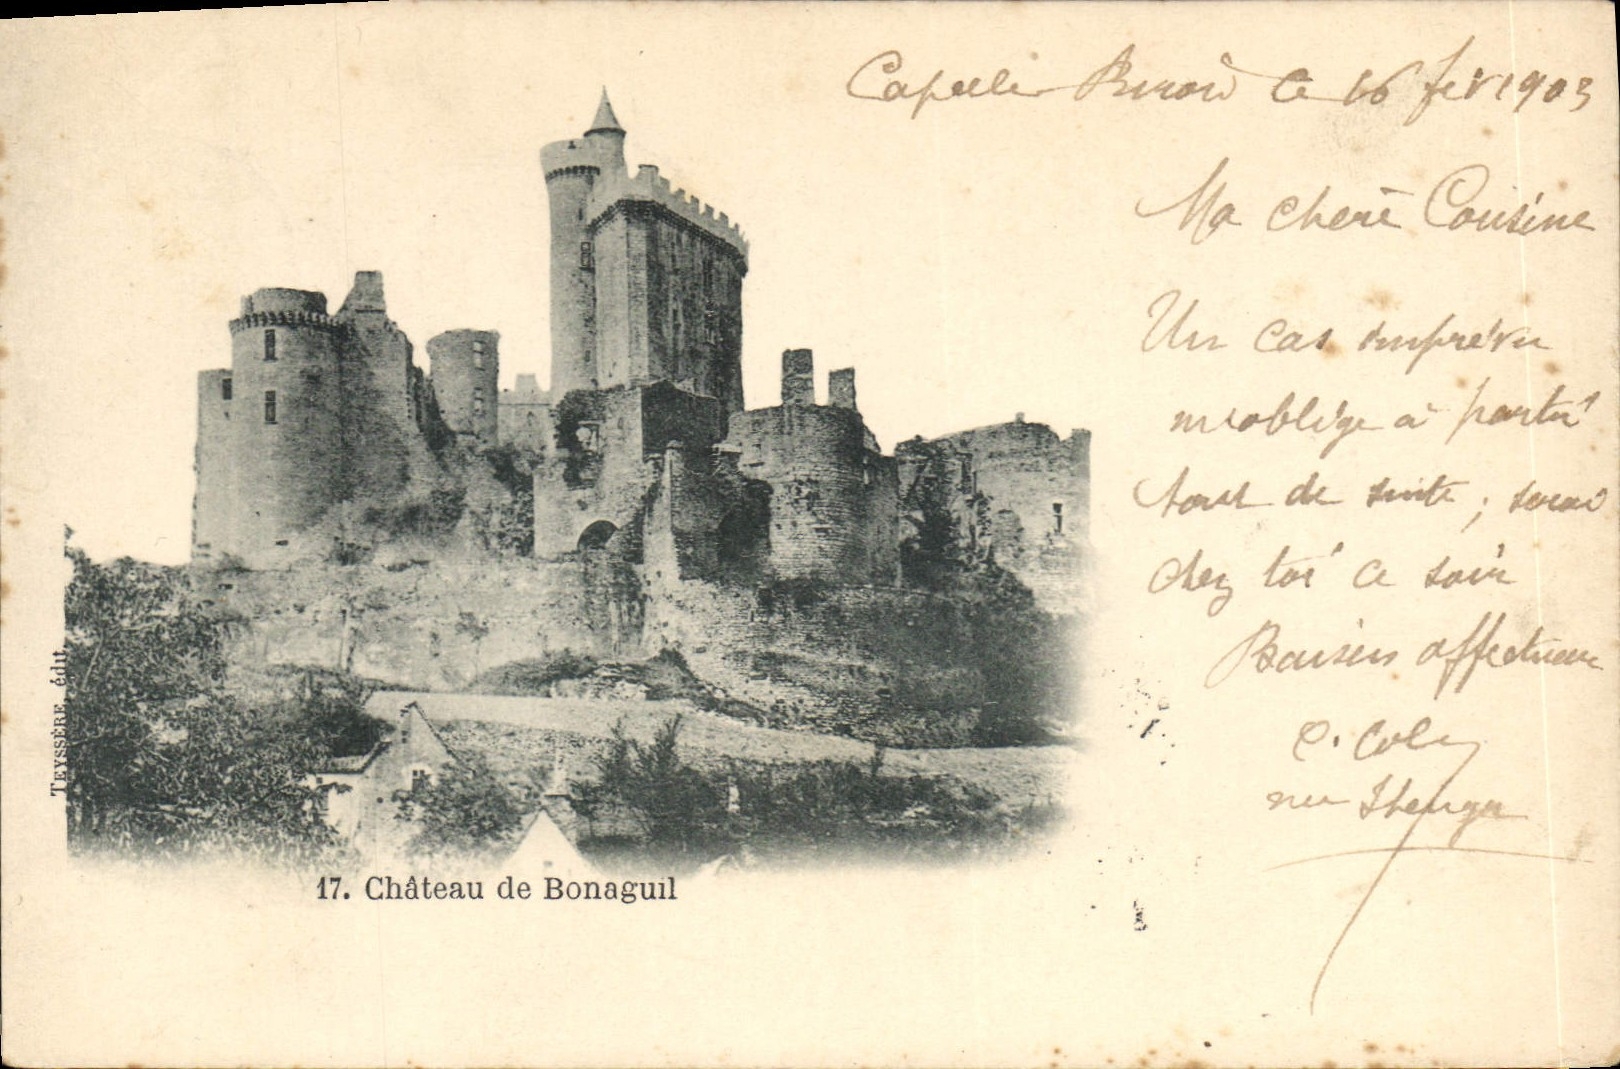 Capelle Biron le 16 fév 1903
Ma chère Cousine
Un cas imprévu
m'oblige à partir
tout de suite, serai
chez toi ce soir
Baisers affectueux
C. Coly
17. Château de Bonaguil
TEYSSÈRE, édit.